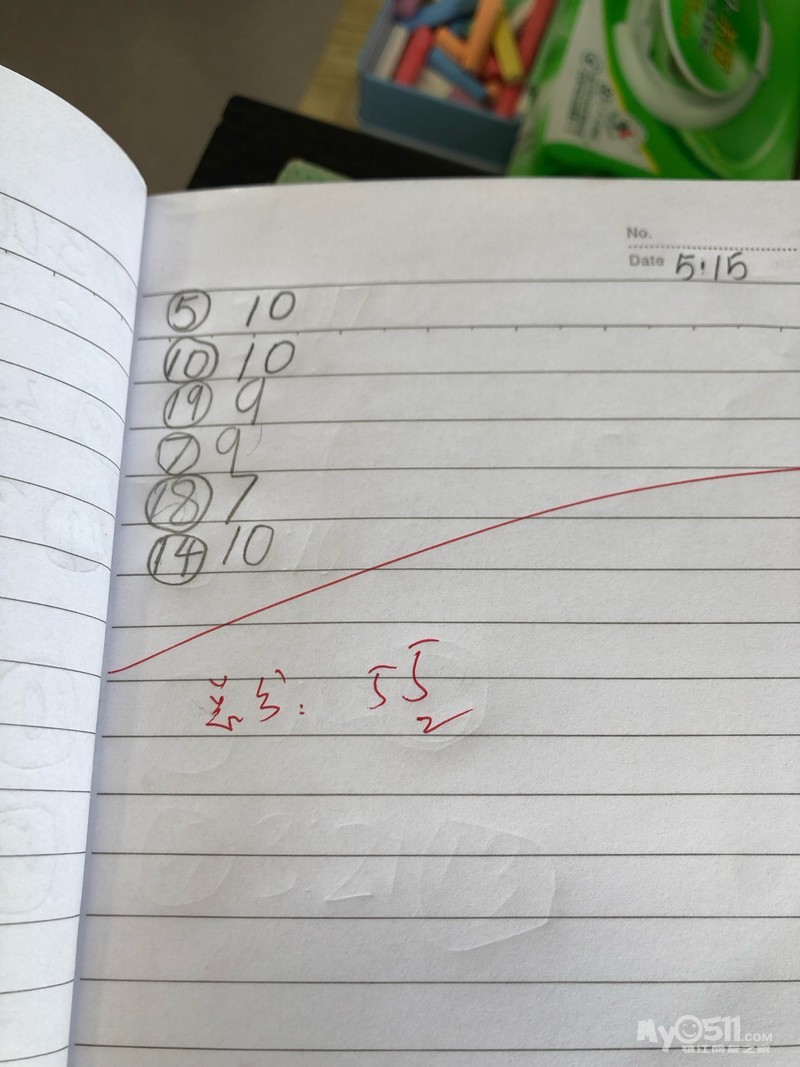 No.
Date 5.15
⑤ 10
⑩ 10
⑲ 9
⑦ 9
⑱ 7
⑭ 10
总分: 55
My0511.COM
镇江网友之家